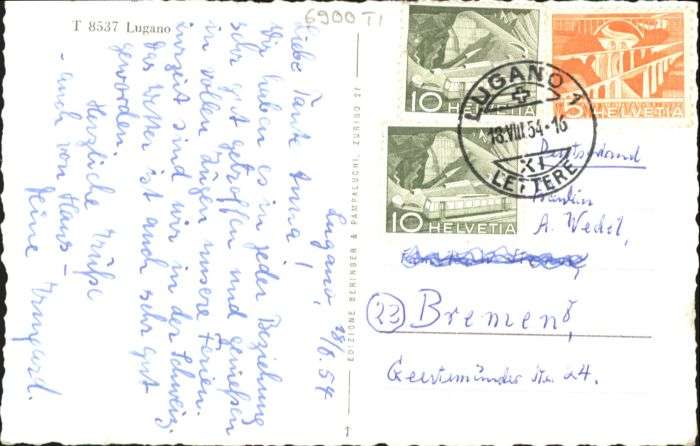 6900 TI
T 8537 Lugano
Lugano, 18/8.54
Liebe Tante Anna!
Wir haben es in jeder Beziehung
sehr gut getroffen und genießen
in vollen Zügen unsere Ferien.
sind wir in der Schweiz,
das Wetter ist auch sehr gut
geworden.
Herzliche Grüße
- auch von Hans -
Deine Irmgard.
EDIZIONE BERINGER & PAMPALUCHI, ZURIGO 21
10 HELVETIA
5 HELVETIA
10 HELVETIA
LUGANO 1
18.VIII.54-16
XI
LETTERE
Deutschland
Fräulein
A. Wedel,
(23) Bremen
Geestemünder Str. 24.